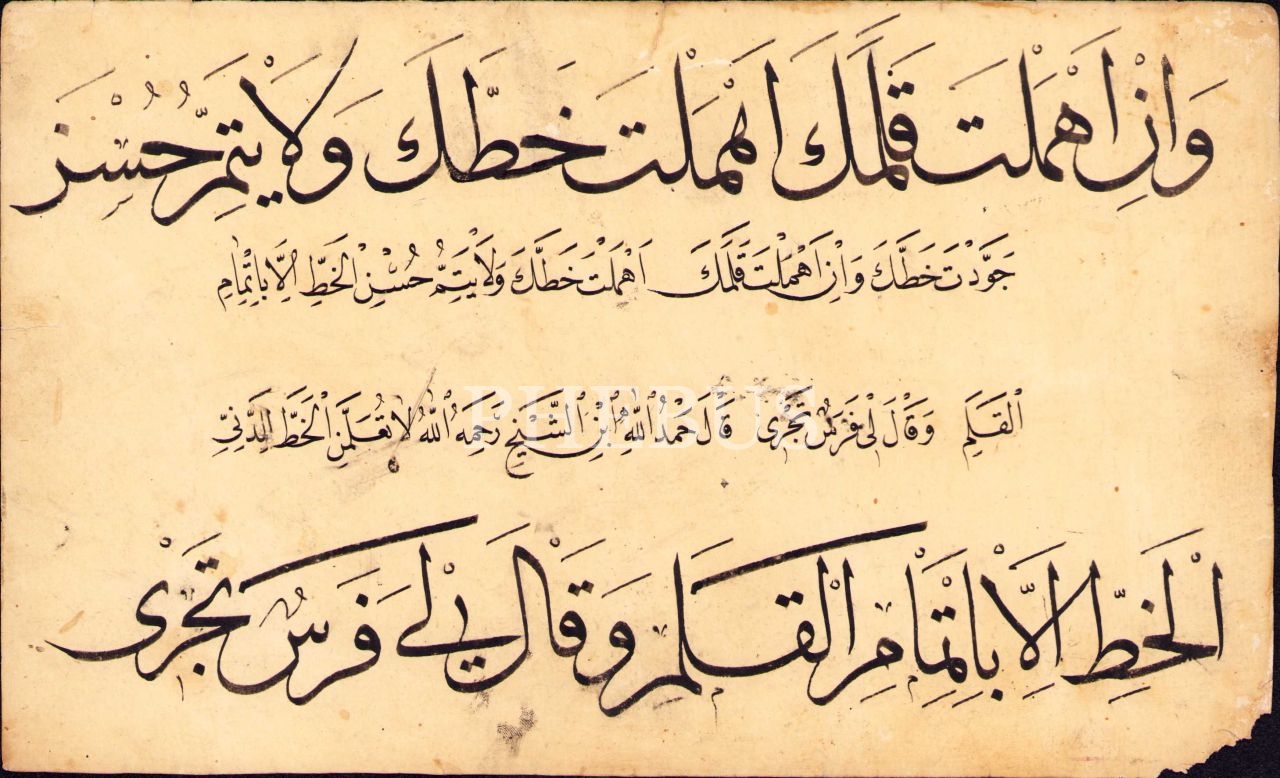 وَاِنْ اَهْمَلْتَ قَلَمَكَ اَهْمَلْتَ خَطَّكَ وَلَا يَتِمُّ حُسْنُ
جَوَّدْتَ خَطَّكَ وَاِنْ اَهْمَلْتَ قَلَمَكَ اَهْمَلْتَ خَطَّكَ وَلَا يَتِمُّ حُسْنُ الْخَطِّ اِلَّا بِاِتْمَامِ
الْقَلَمِ وَقَالَ لِى فَرَسٌ تَجْرِى قَالَ حَمْدُ اللّٰهِ ابْنُ الشَّيْخِ رَحِمَهُ اللّٰهُ لَا تُعَلِّمَنَّ الْخَطَّ
PHEBUS
الْخَطِّ اِلَّا بِاِتْمَامِ الْقَلَمِ وَقَالَ لِى فَرَسٌ تَجْرِى